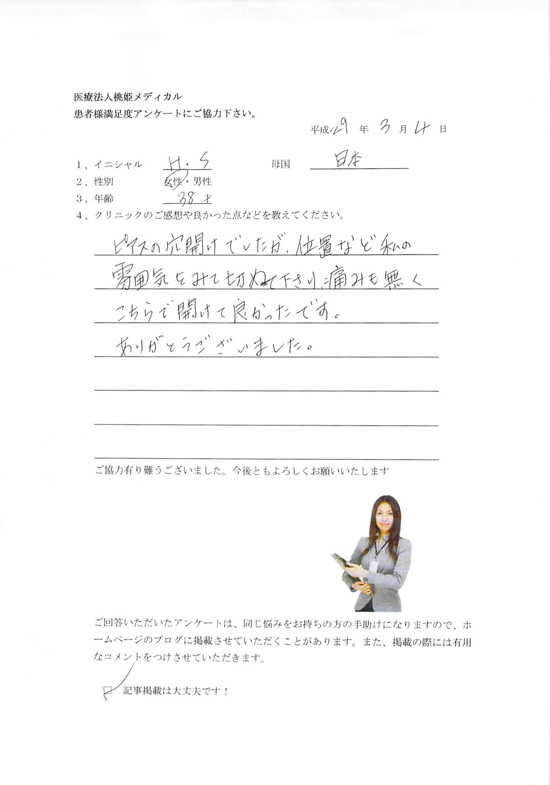 医療法人桃姫メディカル
患者様満足度アンケートにご協力下さい。
平成29年3月4日
1、イニシャル H・S 母国 日本
2、性別 女性・男性
3、年齢 38才
4、クリニックのご感想や良かった点などを教えてください。
ピアスの穴開けでしたが、位置など私の
雰囲気をみて 下さり、痛みも無く
こちらで開けて良かったです。
ありがとうございました。
ご協力有り難うございました。今後ともよろしくお願いいたします
ご回答いただいたアンケートは、同じ悩みをお持ちの方の手助けになりますので、ホ
ームページのブログに掲載させていただくことがあります。また、掲載の際には有用
なコメントをつけさせていただきます。
記事掲載は大丈夫です！